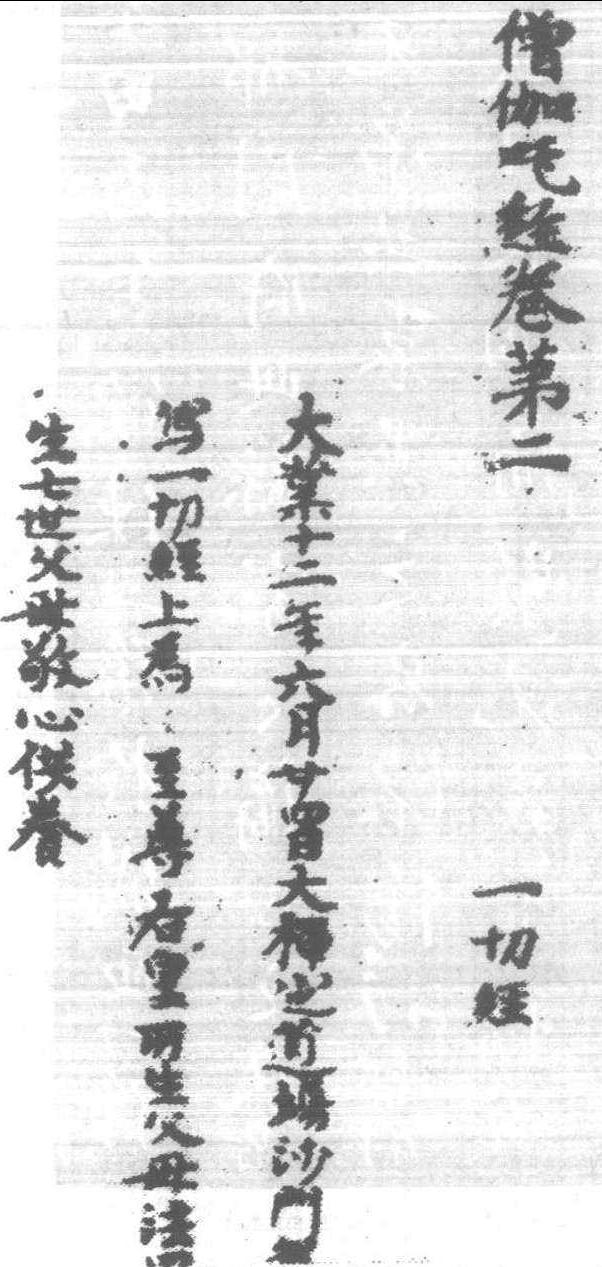 僧伽吒經卷第二
一切經
大業十二年六月廿四日大禪定道場沙門
寫一切經上爲至尊右皇所生父母法
生七世父母敬心供養